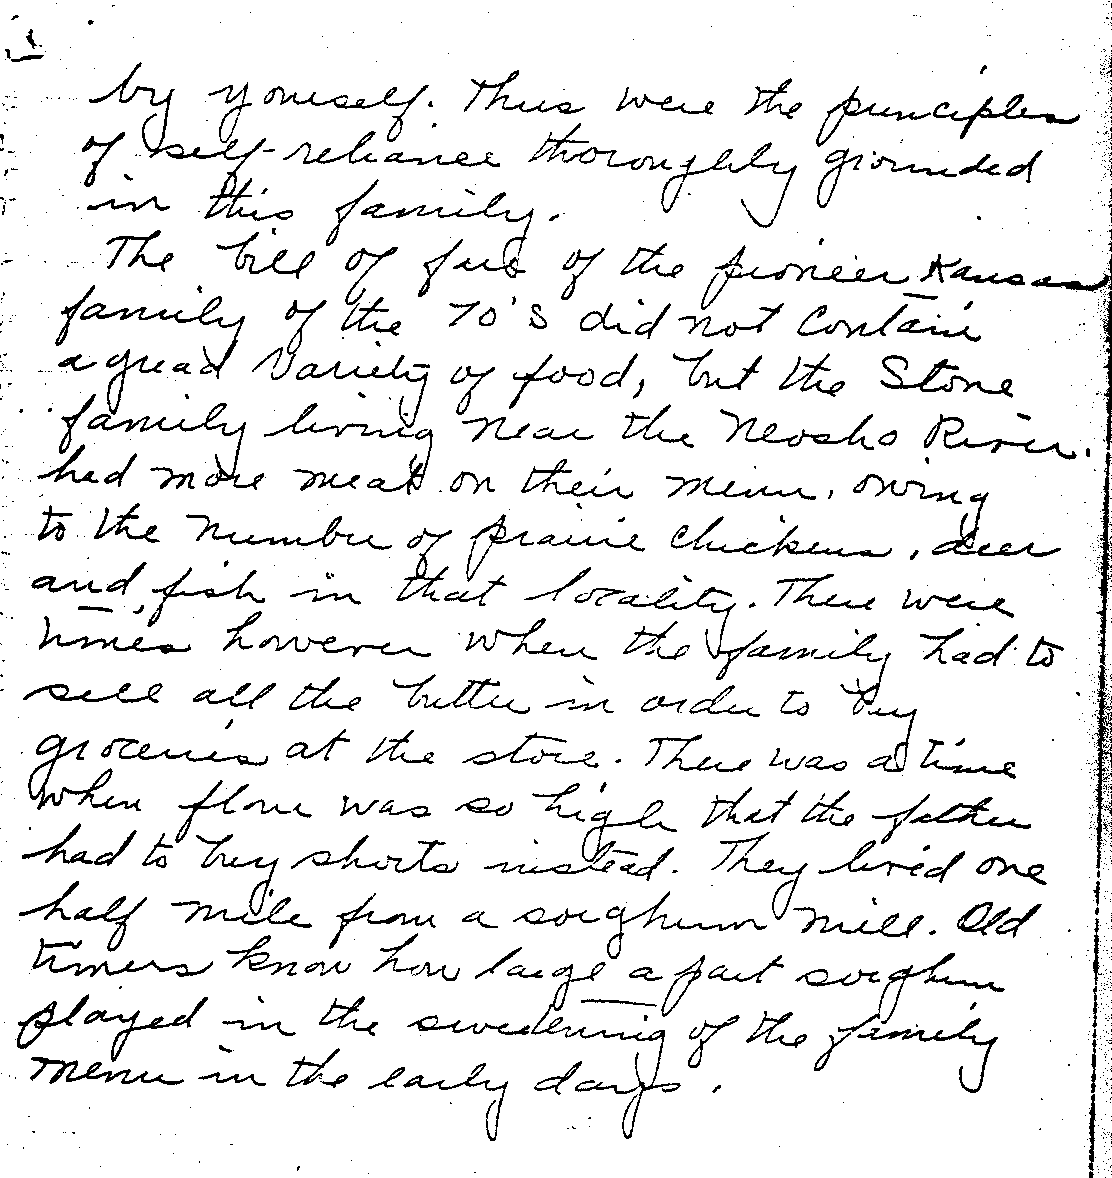 by yourself. Thus were the principles
of self-reliance thoroughly grounded
in this family.
The bill of fare of the pioneer Kansas
family of the 70's did not contain
a great variety of food, but the Stone
family living near the Neosho River.
had more meat on their menu, owing
to the number of prairie chickens, deer
and, fish in that locality. There were
times however when the family had to
sell all the butter in order to buy
groceries at the store. There was a time
when flour was so high that the father
had to buy shorts instead. They lived one
half mile from a sorghum mill. Old
timers know how large a part sorghum
played in the sweetening of the family
menu in the early days.